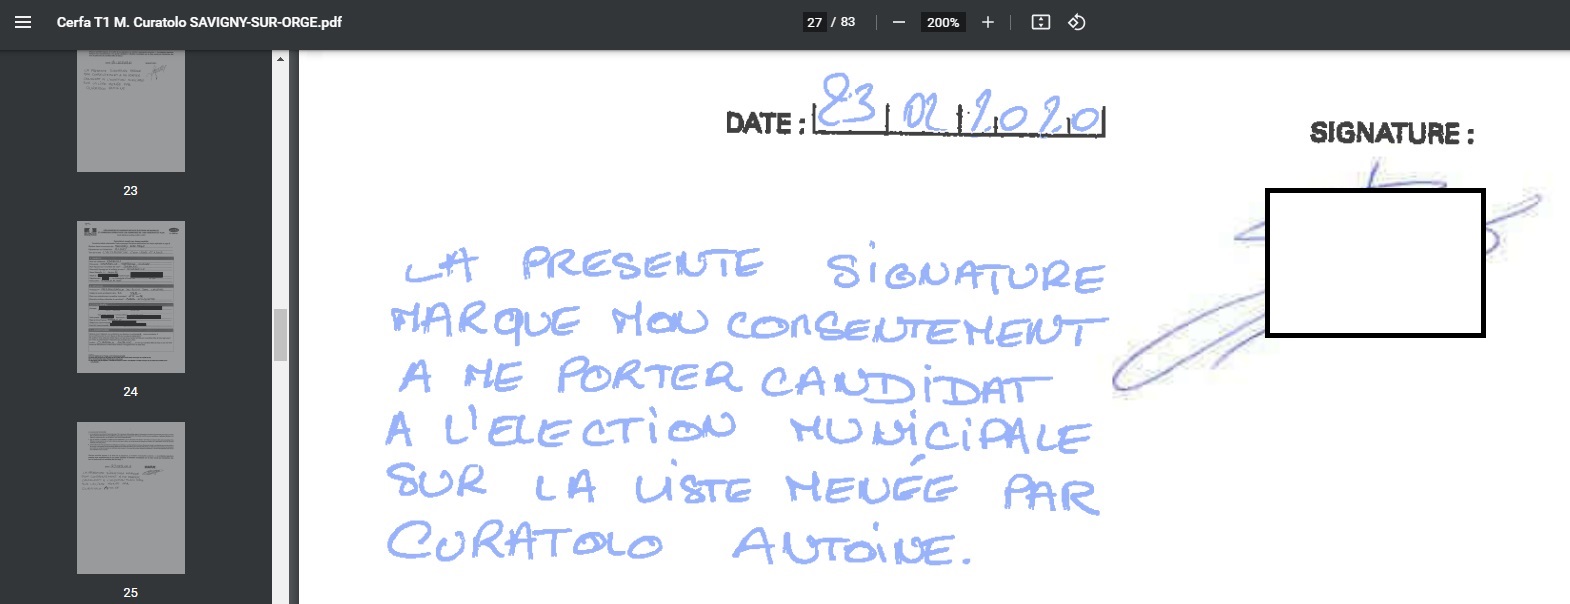 Cerfa T1 M. Curatolo SAVIGNY-SUR-ORGE.pdf
27 / 83
200%
23
24
25
DATE : 23 02 2020
SIGNATURE :
LA PRESENTE SIGNATURE
MARQUE MON CONSENTEMENT
A ME PORTER CANDIDAT
A L'ELECTION MUNICIPALE
SUR LA LISTE MENÉE PAR
CURATOLO ANTOINE.